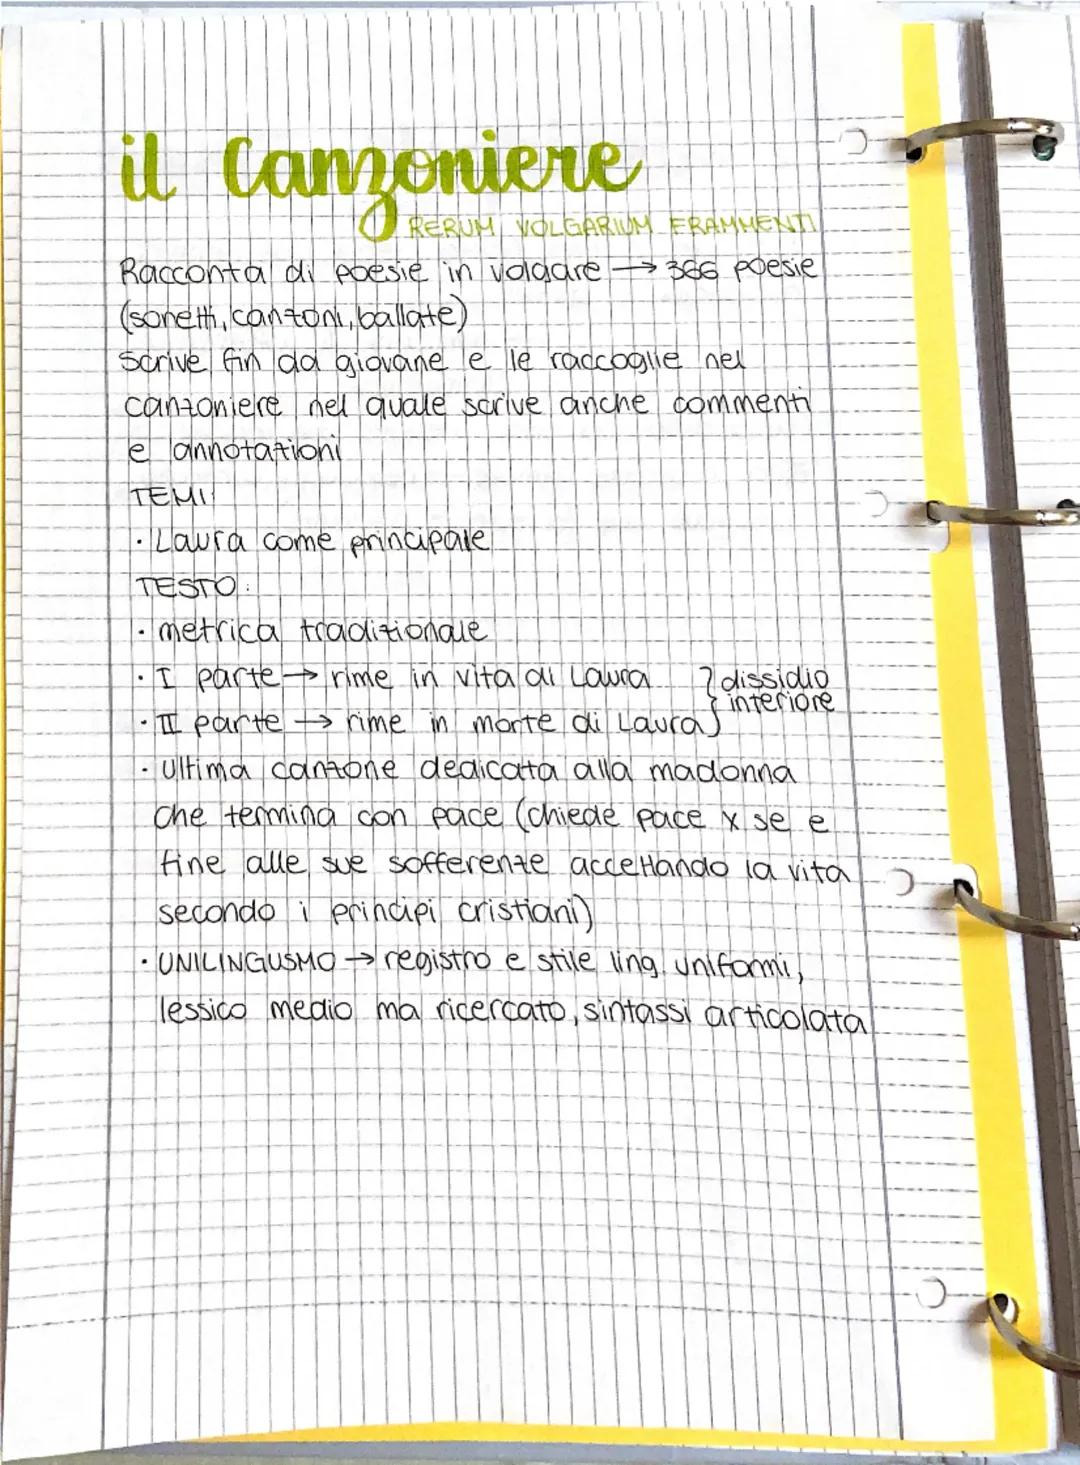 il Canzoniere
RERUM VOLGARIUM FRAMMENTI
Racconta di poesie in volgare → 366 poesie
(sonetti, canzoni, ballate)
scrive fin da giovane e le raccoglie nel
canzoniere nel quale scrive anche commenti
e annotazioni
TEMI:
· Laura come principale
TESTO:
· metrica tradizionale
· I parte → rime in vita di Laura } dissidio
interiore
· II parte → rime in morte di Laura
· Ultima canzone dedicata alla madonna
che termina con pace (chiede pace x se e
fine alle sue sofferenze accettando la vita
secondo i principi cristiani)
· UNILINGUSMO → registro e stile ling. uniformi,
lessico medio ma ricercato, sintassi articolata